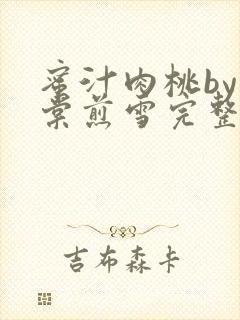 蜜汁肉桃by
棠煎雪完整
吉布森卡